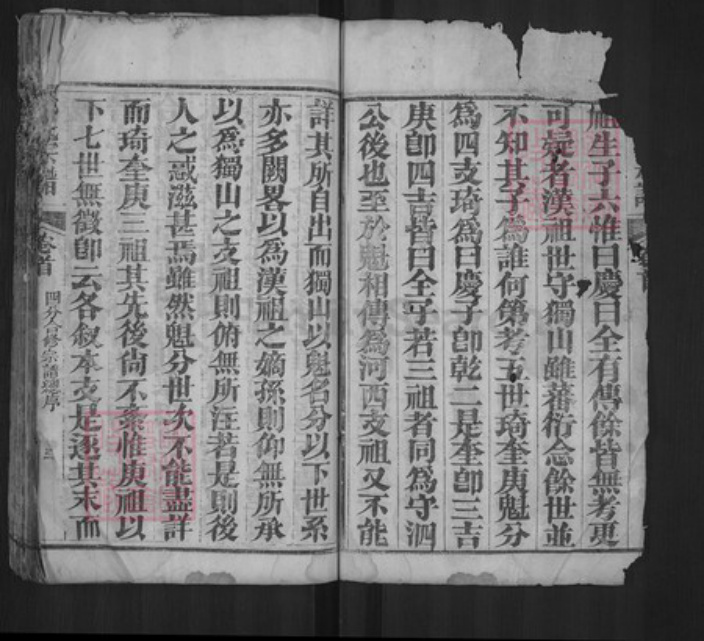 祖生子六惟曰慶曰全有傳餘皆無考更
可疑者漢祖世守獨山雖蕃衍念餘世並
不知其子為誰何第考五世琦奎庚魁分
為四支琦為曰慶子卽乾二是奎卽三吉
庚卽四吉皆曰全子若三祖者同為守泗
公後也至於魁相傳為河西支祖又不能
詳其所自出而獨山以魁名分以下世系
亦多闕畧以為漢祖之嫡孫則仰無所承
以為獨山之支祖則俯無所注若是則後
人之惑滋甚焉雖然魁分世次不能盡詳
而琦奎庚三祖其先後尙不紊惟庚祖以
下七世無徵卽云各敘本支是逐其末而
卷首
四分合修宗譜總序
三